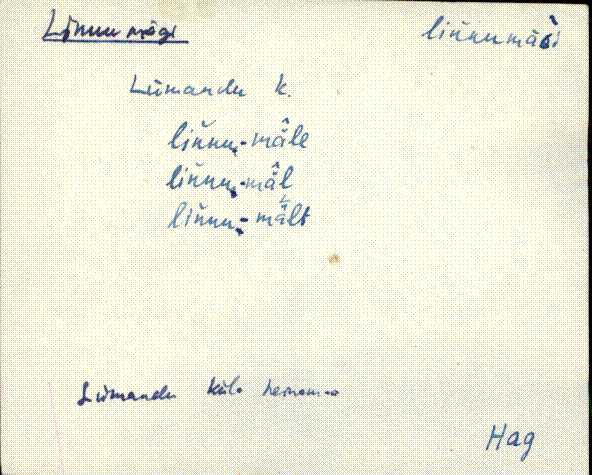 Linnumägi liṅnumäǯi
Liimandu k.
liṅnu-mä̂le
liṅnu-mä̂l
liṅnu-mä̂lt
Liimandu küla heinamaa
Hag